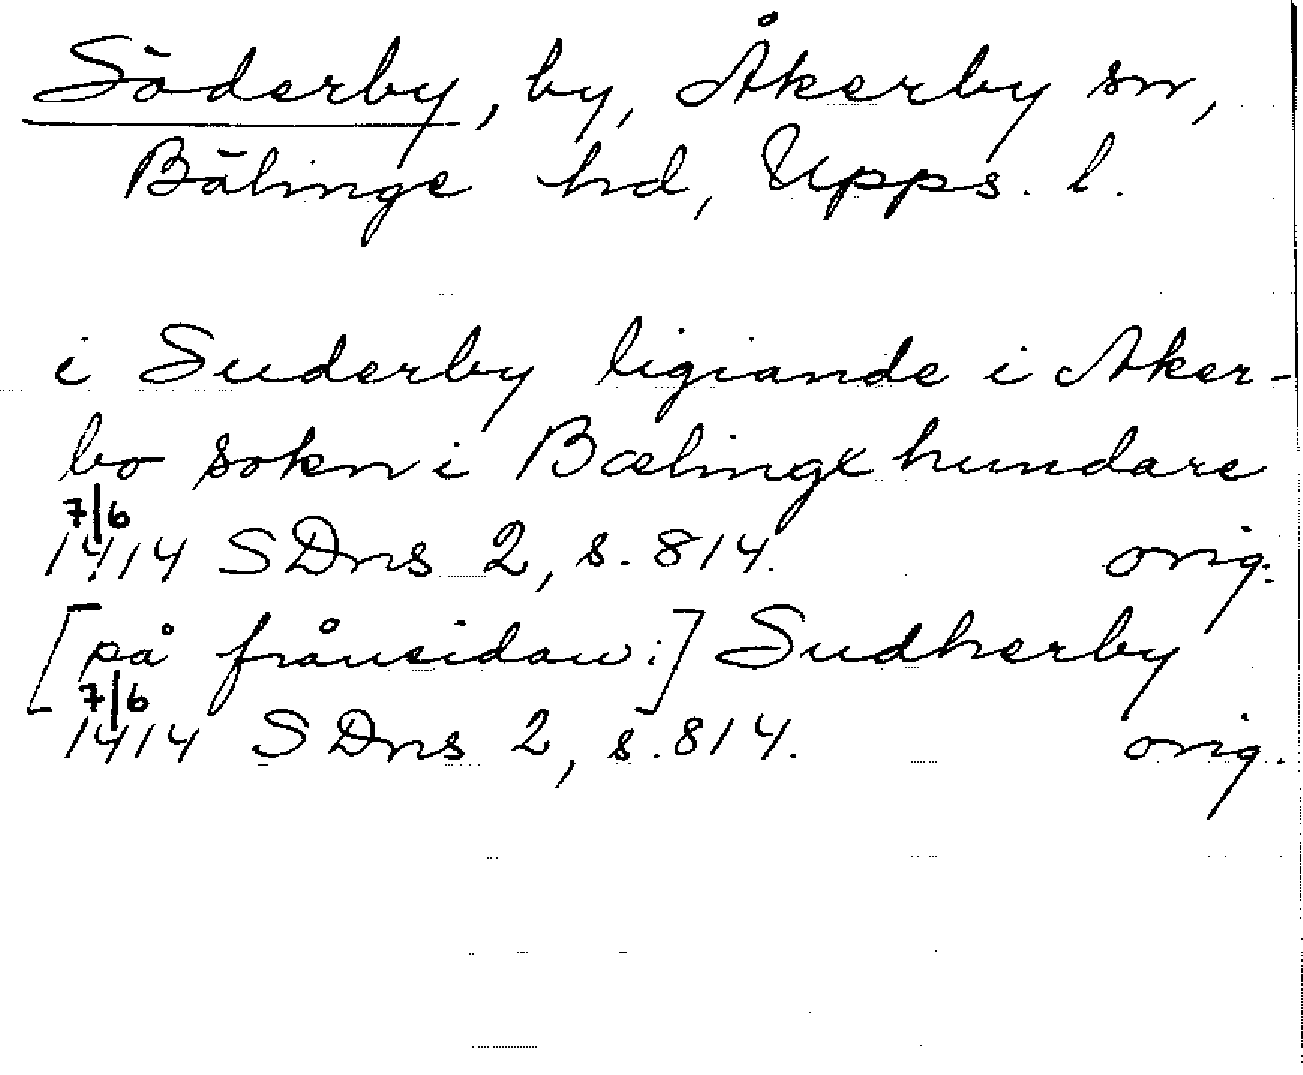 Söderby, by, Åkerby sn,
Bälinge hd, Upps. l.
i Suderby ligiande i Aker-
bo sokn i Bælinge hundare
7/6
1414 SDns 2, s. 814. orig.
[på frånsidan:] Sudherby
7/6
1414 SDns 2, s. 814. orig.